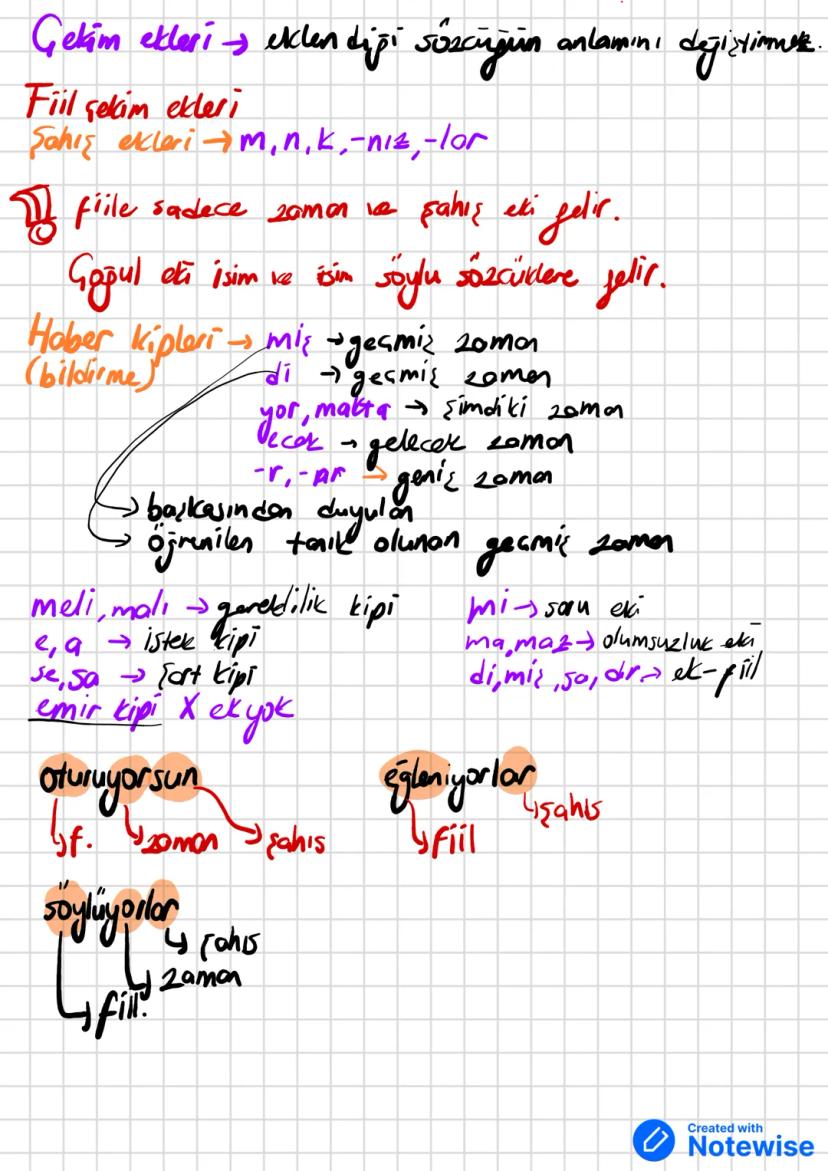 Çekim ekleri → eklendiği sözcüğün anlamını değiştirmez.
Fiil çekim ekleri
Şahıs ekleri → m, n, k, -nız, -lar
!! fiile sadece zaman ve şahıs eki gelir.
Çoğul eki isim ve isim söylu sözcüklere gelir.
Haber kipleri → miş → geçmiş zaman
(bildirme) di → geçmiş zaman
yor, makta → şimdiki zaman
ecek → gelecek zaman
-r, -ar → geniş zaman
→ başkasından duyulan
→ öğrenilen tanık olunan geçmiş zaman
meli, malı → gereklilik kipi
e, a → istek kipi
se, sa → şart kipi
emir kipi X ek yok
mi → soru eki
ma, maz → olumsuzluk eki
di, miş, sa, dır → ek-fiil
oturuyorsun
f. zaman şahıs
eğleniyorlar
şahıs
fiil
söylüyorlar
şahıs
zaman
fiil.
Created with
Notewise